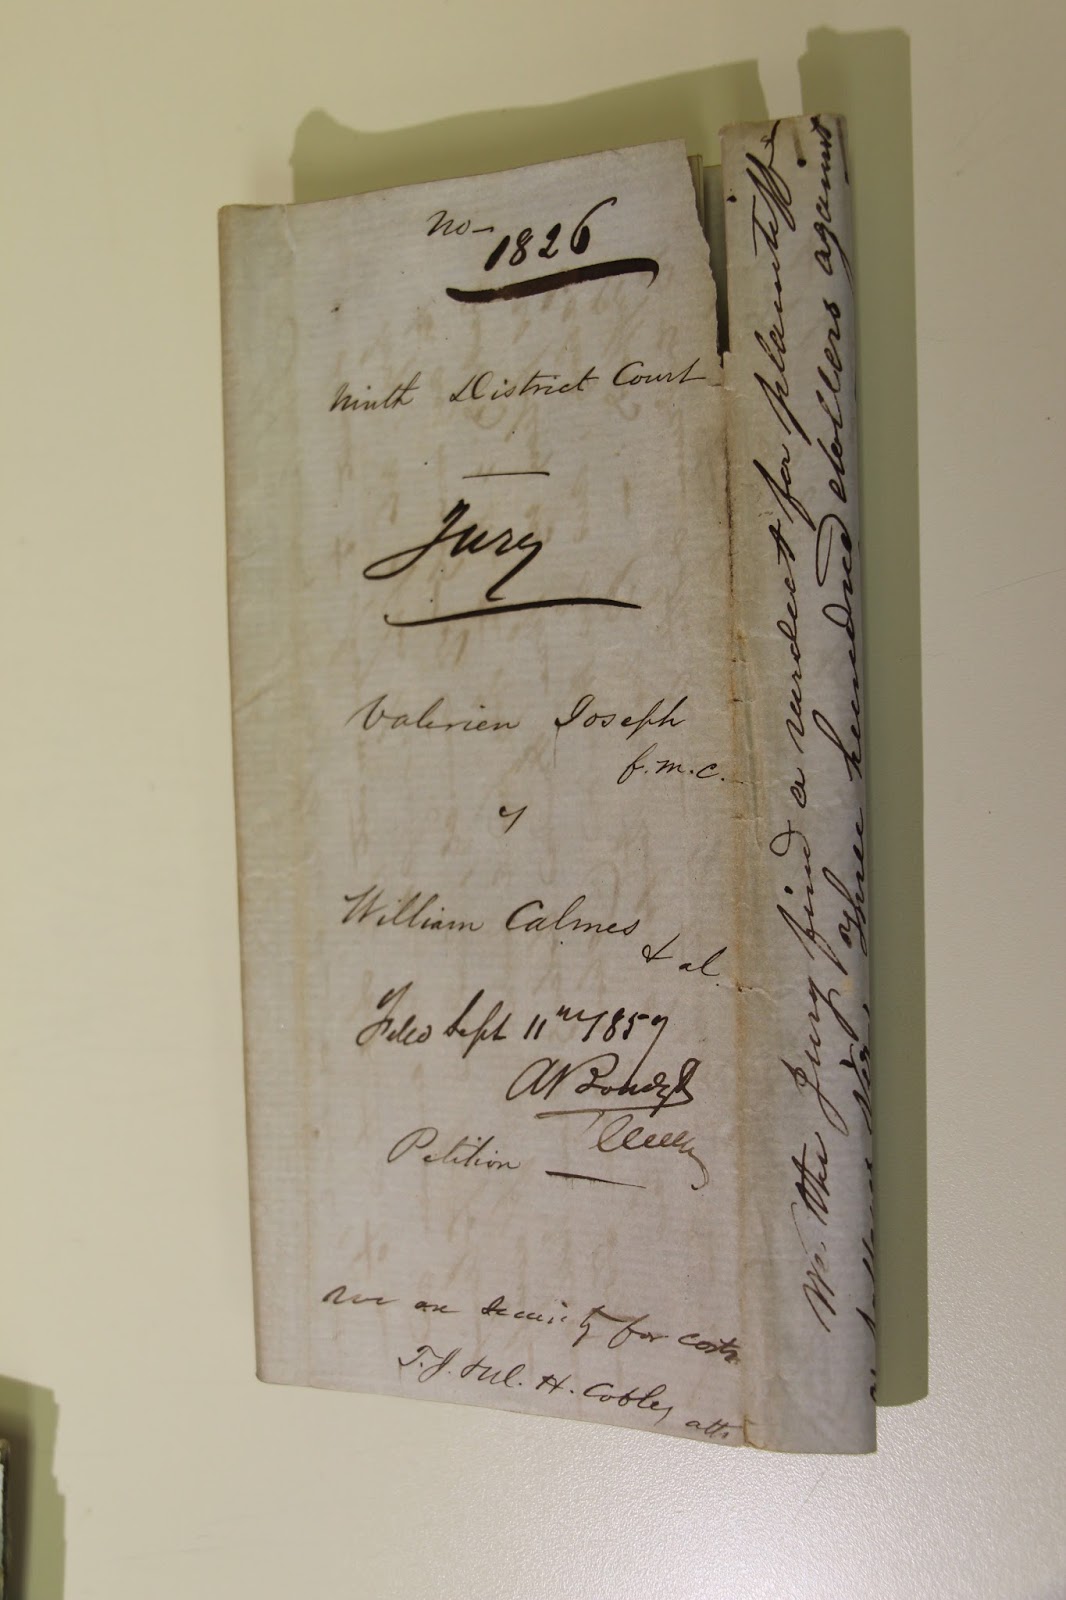 No-
1826
Ninth District Court
Jury
Valerien Joseph
f.m.c.
vs
William Calmes
& al.
Filed Sept 11th 1857
Petition
We are Security for costs
T.J. & H. Cooley atts
We the Jury find a verdict for plaintiff
of Three hundred dollers against